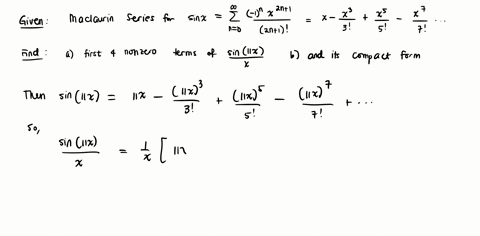 Given: Maclaurin Series for sinx = ∑_{n=0}^{∞} (-1)^n x^{2n+1} / (2n+1)! = x - x^3/3! + x^5/5! - x^7/7! ...
Find: a) first 4 nonzero terms of sin(11x)/x b) and its compact form
Then sin(11x) = 11x - (11x)^3/3! + (11x)^5/5! - (11x)^7/7! + ...
So,
sin(11x)/x = 1/x [ 11x